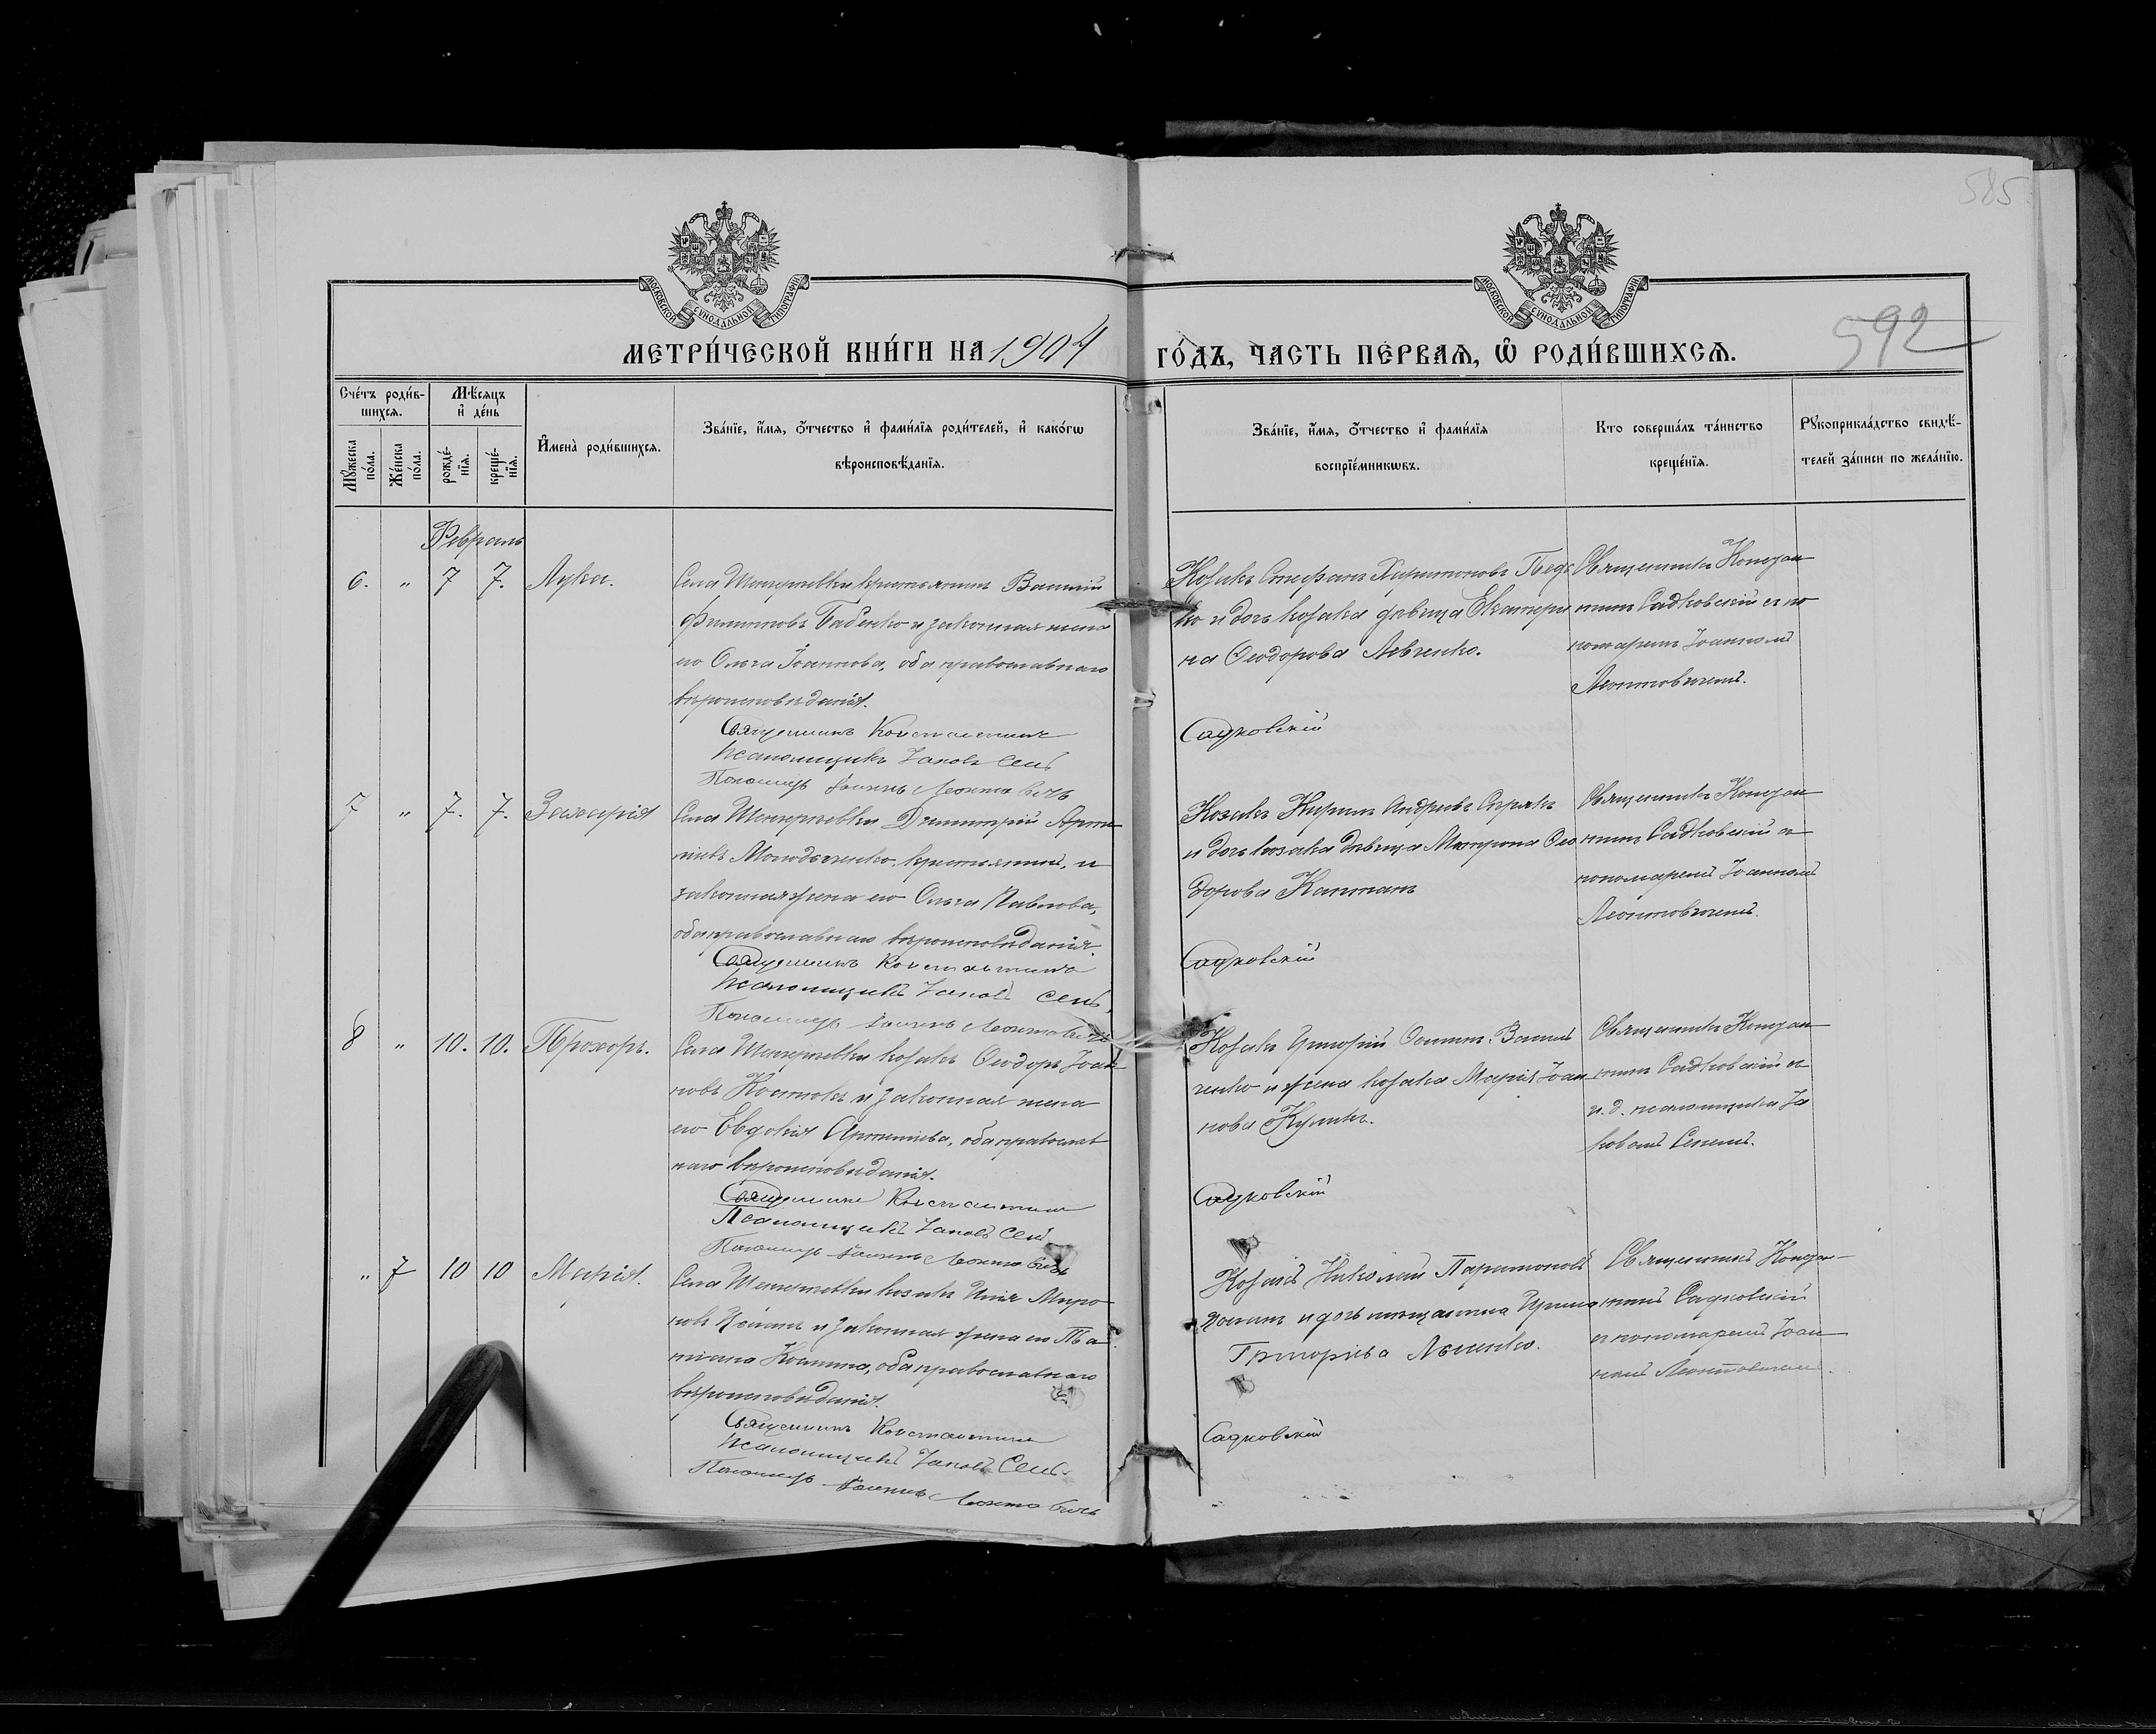 585
592
МОСКОВСКОЙ СѴНОДАЛЬНОЙ ТИПОГРАФІИ
МОСКОВСКОЙ СѴНОДАЛЬНОЙ ТИПОГРАФІИ
МЕТРИ́ЧЕСКОЙ КНИ́ГИ НА 1904
ГО́ДЪ, ЧАСТЬ ПЕ́РВАѦ, Ѡ҆ РОДИ́ВШИХСѦ.
Сче́тъ роди́в-
шихсѧ.
Мѣ́сѧцъ
и҆ де́нь
Мꙋ́жеска
по́ла.
Же́нска
по́ла.
рожде́-
нїѧ.
креще́-
нїѧ.
И҆мена̀ роди́вшихсѧ.
Зва́нїе, и҆́мѧ, ѻ҆́тчество и҆ фами́лїѧ роди́телей, и҆ како́гѡ
вѣроисповѣ́данїѧ.
Зва́нїе, и҆́мѧ, ѻ҆́тчество и҆ фами́лїѧ
воспрїе́мникѡвъ.
Кто соверша́лъ та́инство
креще́нїѧ.
Рꙋкоприкла́дство свидѣ́-
телей за́писи по жела́нїю.
Февраль
6. " 7 7. Лука.
Села крестьянинъ Василій
Филиповъ Бабенко и законная жена
его Ольга Іоаннова, оба православнаго
вѣроисповѣданія.
Священникъ Константинъ
Псаломщикъ Іаковъ Сень
Пономарь Іоаннъ Леонтовичъ
Козакъ Стефанъ Харитоновъ
ко и дочь козака дѣвица Екатери
на Ѳеодорова Левченко.
Садковскій
Священникъ Констан
тинъ Садковскій съ по
номаремъ Іоанномъ
Леонтовичемъ.
7 " 7. 7. Захарія
Села Димитрій Арте
міевъ Молодченко, крестьянинъ, и
законная жена его Ольга Павлова,
оба православнаго вѣроисповѣданія.
Священникъ Константинъ
Псаломщикъ Іаковъ Сень
Пономарь Іоаннъ Леонтовичъ
Козакъ Кириллъ Андреевъ
и дочь козака дѣвица Матрона Ѳео
дорова
Садковскій
Священникъ Констан
тинъ Садковскій съ
пономаремъ Іоанномъ
Леонтовичемъ.
8 " 10. 10. Прохоръ.
Села козакъ Ѳеодоръ Іоан
новъ и законная жена
его Евдокія Артеміева, оба православ
наго вѣроисповѣданія.
Священникъ Константинъ
Псаломщикъ Іаковъ Сень
Пономарь Іоаннъ Леонтовичъ
Козакъ Григорій
ченко и жена козака Марія Іоан
нова Куликъ.
Садковскій
Священникъ Констан
тинъ Садковскій съ
и. д. псаломщика Іа
ковомъ Сенемъ.
" 7 10 10 Марія.
Села козакъ Илія Миро
новъ и законная жена его Та
тіана оба православнаго
вѣроисповѣданія.
Священникъ Константинъ
Псаломщикъ Іаковъ Сень
Пономарь Іоаннъ Леонтовичъ
Козакъ Николай
и дочь мѣщанина
Григорьева
Садковскій
Священникъ Констан
тинъ Садковскій
съ пономаремъ Іоан
номъ Леонтовичемъ.